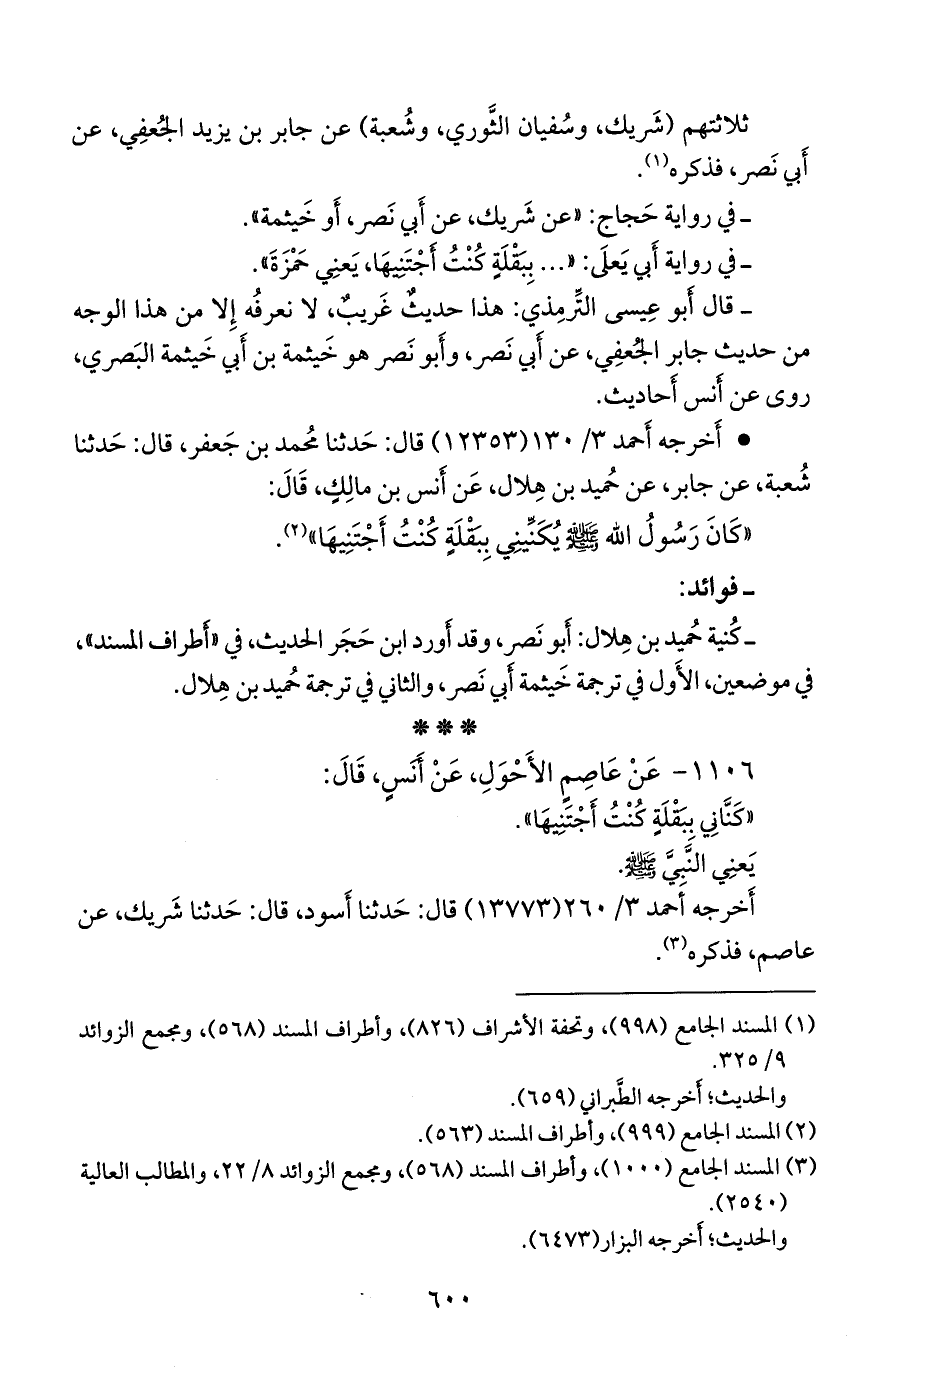 ثلاثتهم (شَريك، وسُفيان الثَّوري، وشُعبة) عن جابر بن يزيد الجُعفِي، عن
أَبي نَصر، فذكره(١).
ـ في رواية حَجاج: «عن شَريك، عن أَبي نَصر، أَو خَيثمة».
ـ في رواية أَبي يَعلَى: «... بِبَقْلَةٍ كُنْتُ أَجْتَنِيهَا، يَعنِي حَمْزَةَ».
ـ قال أَبو عِيسى التِّرمِذي: هذا حديثٌ غَريبٌ، لا نعرفُه إِلا من هذا الوجه
من حديث جابر الجُعفِي، عن أَبي نَصر، وأَبو نَصر هو خَيثمة بن أَبي خَيثمة البَصري،
روى عن أَنس أَحاديث.
● أَخرجه أَحمد ٣/ ١٣٠(١٢٣٥٣) قال: حَدثنا مُحمد بن جَعفر، قال: حَدثنا
شُعبة، عن جابر، عن حُميد بن هِلال، عَن أَنس بن مالِكٍ، قَالَ:
«كَانَ رَسُولُ الله ﷺ يُكَنِّينِي بِبَقْلَةٍ كُنْتُ أَجْتَنِيهَا»(٢).
ـ فوائد:
ـ كُنية حُميد بن هِلال: أَبو نَصر، وقد أَورد ابن حَجَر الحديث، في «أَطراف المسند»،
في موضعين، الأَول في ترجمة خَيثمة أَبي نَصر، والثاني في ترجمة حُميد بن هِلال.
* * *
١١٠٦- عَنْ عَاصِمٍ الأَحْوَلِ، عَنْ أَنَسٍ، قَالَ:
«كَنَّانِي بِبَقْلَةٍ كُنْتُ أَجْتَنِيهَا».
يَعنِي النَّبِيَّ ﷺ.
أَخرجه أحمد ٣/ ٢٦٠(١٣٧٧٣) قال: حَدثنا أَسود، قال: حَدثنا شَريك، عن
عاصم، فذكره(٣).
(١) المسند الجامع (٩٩٨)، وتحفة الأشراف (٨٢٦)، وأطراف المسند (٥٦٨)، ومجمع الزوائد
٩/ ٣٢٥.
والحديث؛ أَخرجه الطَّبراني (٦٥٩).
(٢) المسند الجامع (٩٩٩)، وأطراف المسند (٥٦٣).
(٣) المسند الجامع (١٠٠٠)، وأطراف المسند (٥٦٨)، ومجمع الزوائد ٨/ ٢٢، والمطالب العالية
(٢٥٤٠).
والحديث؛ أَخرجه البزار(٦٤٧٣).
٦٠٠